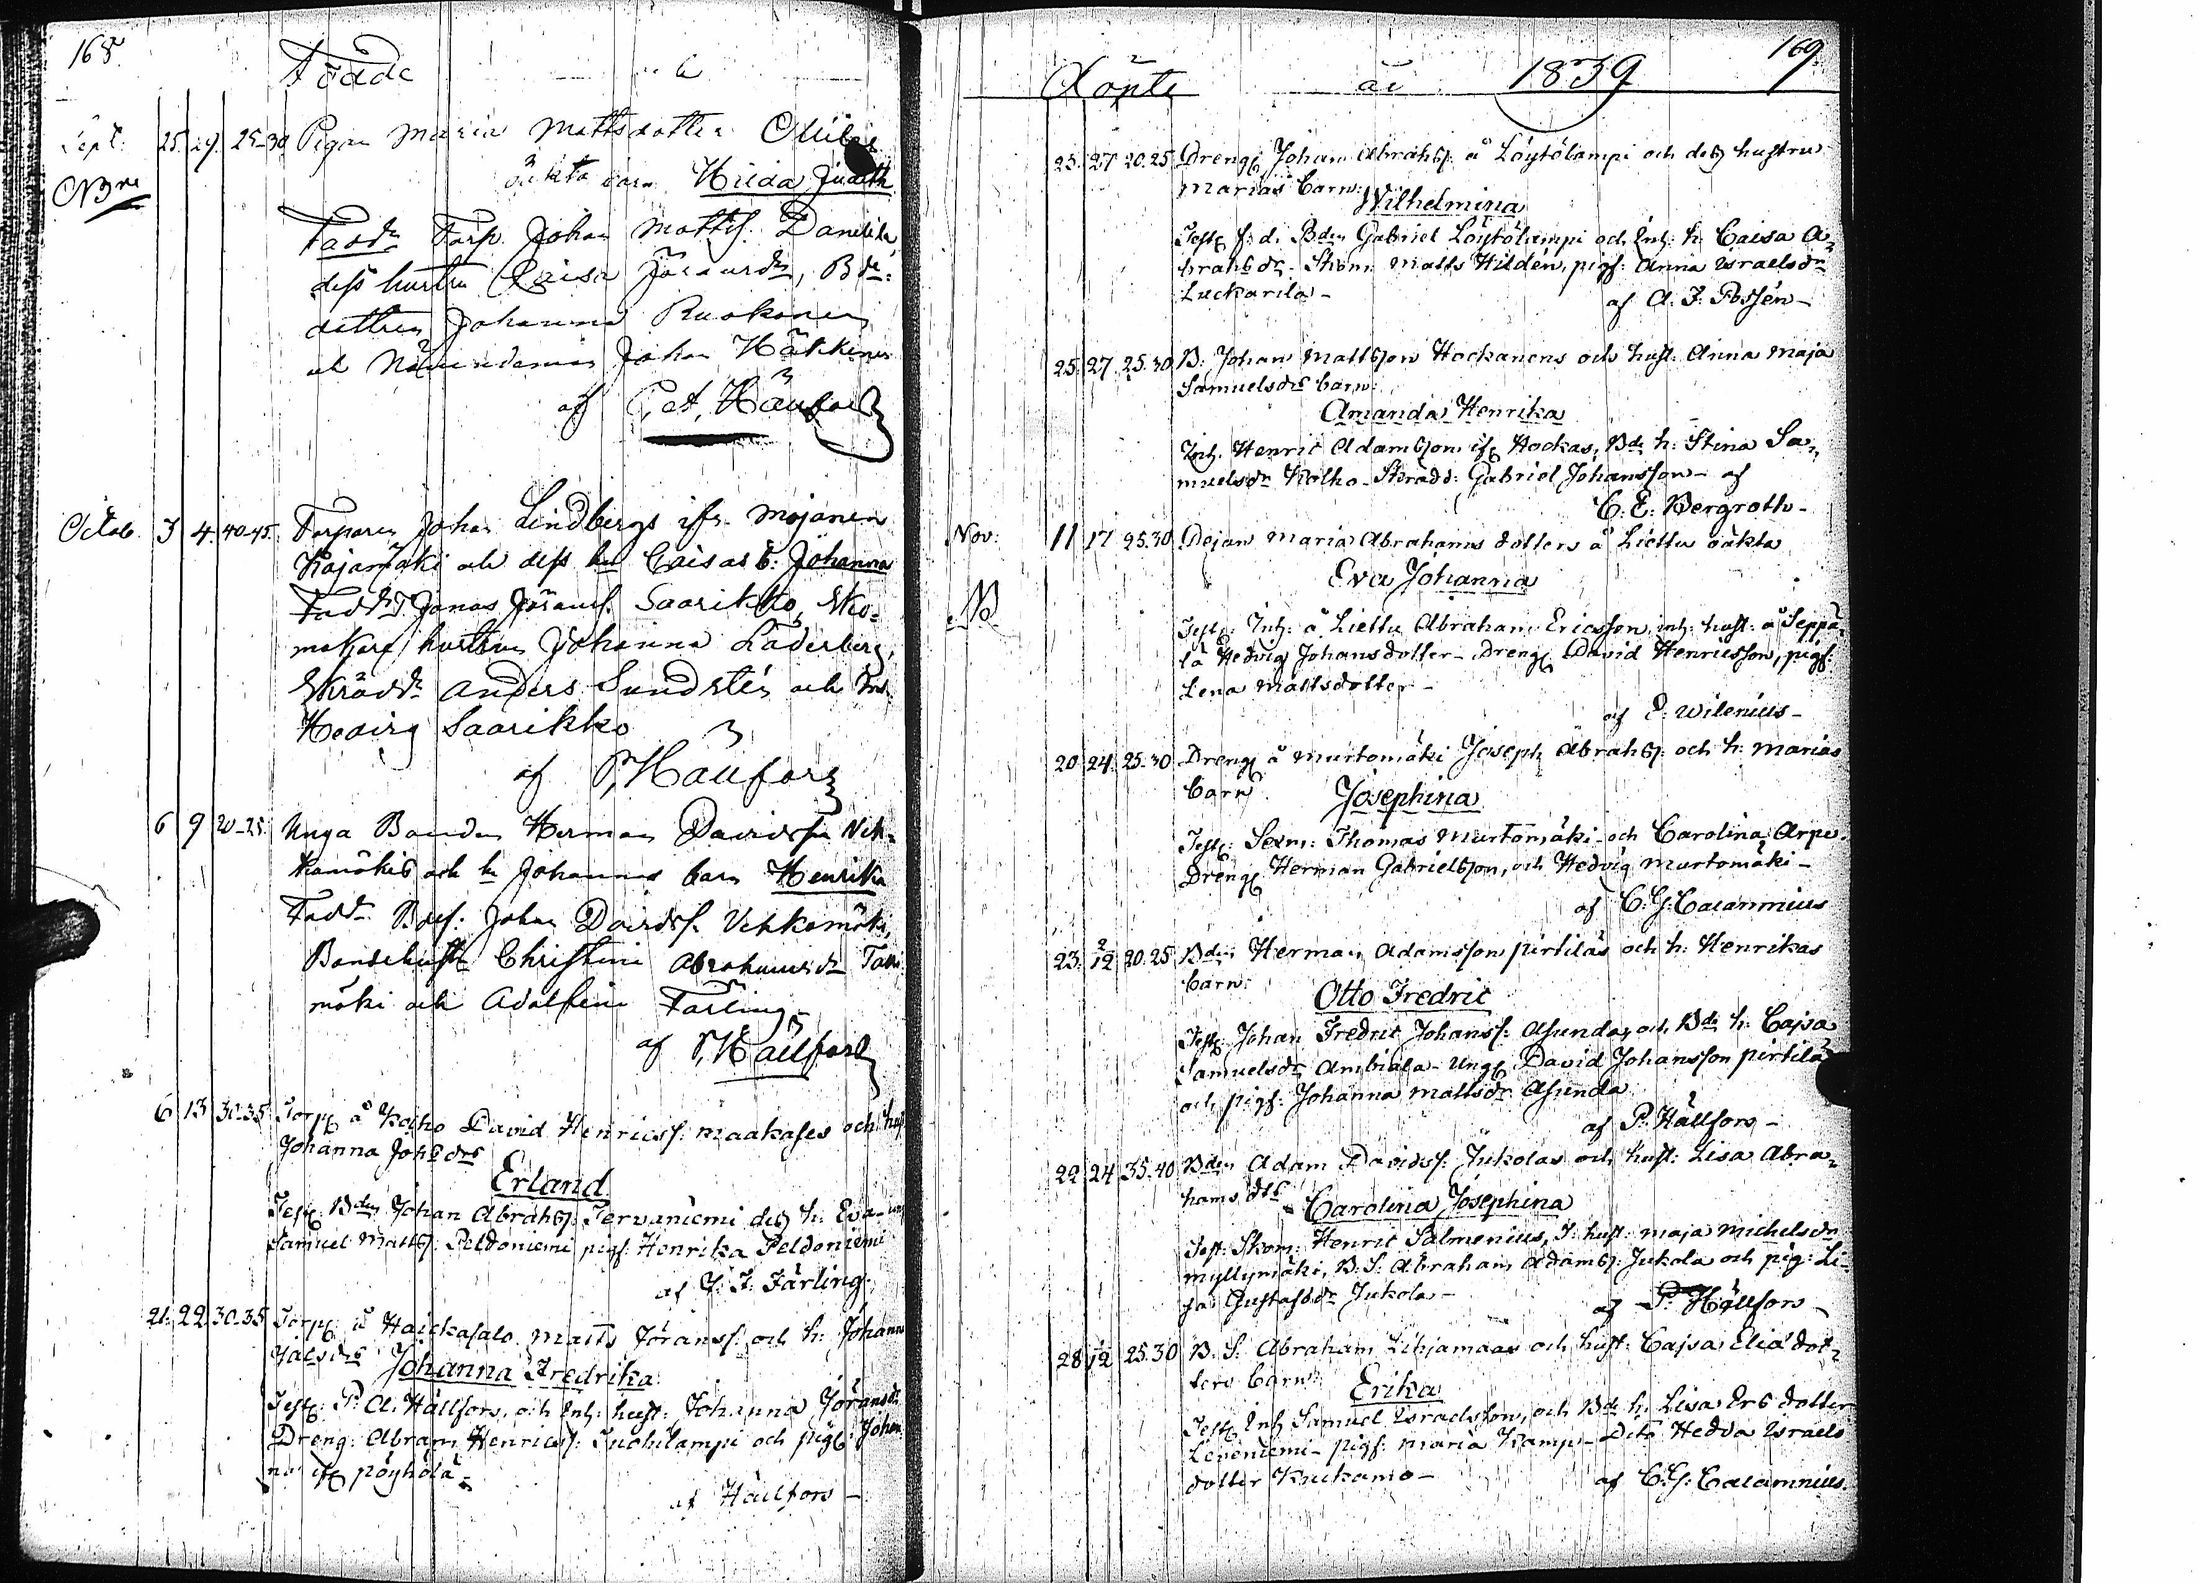 168.
Födde
Sept: 25. 29. 25-30 Pigan Maria Mattsdotter
oäkta barn Hilda Judith
NB
Fadd. Torp. Johan Mattss. Danskila
dess hustru Caisa Jöransdr, Bde:
dottren Johanna Ruokonen
och Nämndeman Johan Häkkinen
af Pet. Hällfors
Octob. 3 4. 40-45. Torparen Johan Lindbergs ifr. Mojanen
Kajamäki och dess hu Caisas b: Johanna
Fadd. T Jonas Jöranss. Saarikko, Sko-
makare hustrun Johanna Läderberg,
Skrädd. Anders Sundstén och Inh.
Hedvig Saarikko
af P. Hällfors
6 9 20-25. Unga Bonden Herman Davidsson Veh-
kamäkis och h. Johannas barn Henrika
Fadd. Bds. Johan Davids. Vehkamäki,
Bondehustr. Christina Abrahamsdr
mäki och Adolfina Färling,
af P. Hällfors
6 13 30.35. Torp. å Kolho David Henricss. Maakases och hust
Johanna Johsdrs
Erland
Test. Bden Johan Abrahss. Tervaniemi dess h. Eva
Samuel Mattss. Peldoniemi pigs. Henrika Peldoniemi
af G. F. Färling.
21. 22. 30.35 Torp. å Haickasalo Matts Jöranss. och h. Johanna
Johanna Fredrika
Test. P. A. Hällfors, och Inh: hust: Johanna Jöransdr
Dreng: Abram Henricss: Juohilampi och pig: Johan-
na ifr pöyhölä
af Hällfors -
169.
Döpte år 1839
25. 27 20.25 Dreng Johan Abrahss. å Löytölampi och dess hustru
Marias barn:
Wilhelmina
Test. f: d: Bden Gabriel Löytölampi och Inh: h. Caisa A-
brahsdr. Skom. Matts Hildén, pigs: Anna Israelsdr
Luckarila -
af A. F. Possén -
25. 27. 25.30 B. Johan Mattsson Hockanens och hust. Anna Maja
Samuelsdrs barn:
Amanda Henrika
Inh. Henric Adamsson ifr Hockas, Bde h: Stina Sa-
muelsdr Kolho - Skrädd: Gabriel Johansson - af
C. E. Bergroth -
Nov: 11 17 25.30 Dejan Maria Abrahams dotters å Liettu oäkta
Eva Johanna
NB
Test: Inh: å Liettu Abraham Ericsson, inh: hust: å Seppä-
lä Hedvig Johansdotter - Dreng David Henricsson, pigs:
Lena Mattsdotter -
af E: Wilenius -
20 24. 25-30 Dreng å Murtomäki Joseph Abrahss: och h: Marias
barn
Josephina
Test: Sexm: Thomas Murtomäki - och Carolina Arpe.
Dreng Herman Gabrielsson, och Hedvig Murtomäki -
af C. G: Calamnius
23. 2/12 20.25 Bden Herman Adamsson pirtiläs och h: Henrikas
barn:
Otto Fredric
Test: Johan Fredric Johanss: Asunda, och Bde h: Cajsa
Samuelsdr Ambiala - Ung David Johansson pirtilä
och pigs: Johanna Mattsdr Asunda
af P. Hällfors -
22 24 35.40 Bden Adam Davidss: Jukolas och hust: Lisa Abra-
hams drs
Carolina Josephina
Test: Skom: Henric Salmenius, I: hust: Maja Michelsdr
Myllymäki, B. S: Abraham Adamss: Jukola och pig: Li-
sa Gustafsdr Jukola -
af P. Hällfors -
28 /12 25.30 B. S: Abraham Lihjamaas och hust: Cajsa Elia dot-
ters barn:
Erika
Test: Inh Samuel Israelsson, och Bde h. Lisa Ers dotter
Leveniemi - pigs: Maria Kamp - Dito Hedda Israels
dotter Kuckamo -
af C. G: Calamnius.